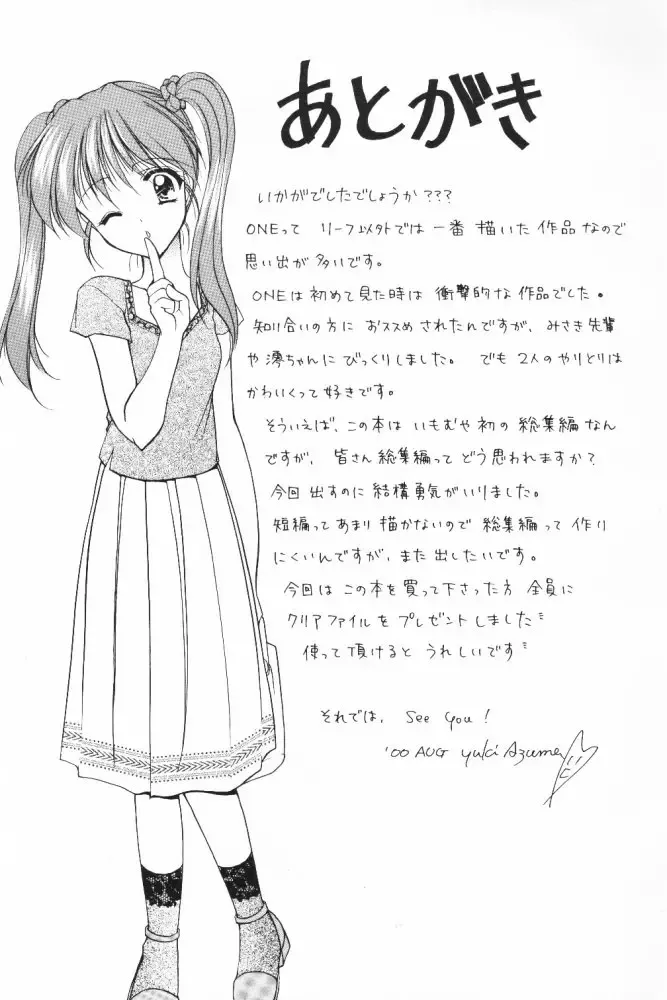 あとがき
いかがでしたでしょうか???
ONEって リーフ以外では 一番 描いた 作品 なので
思い出が 多いです。
ONEは 初めて 見た 時は 衝撃的な 作品でした。
知り合いの方に おススめ されたんですが、みさき先輩
や 澪ちゃんに びっくりしました。 でも 2人の やりとりは
かわいくって 好きです。
そういえば、この本は いもむや 初の 総集編 なん
ですが、 皆さん 総集編って どう思われますか?
今回 出すのに 結構 勇気が いりました。
短編って あまり 描かないので 総集編って 作り
にくいんですが、また 出したいです。
今回は この本を 買って 下さった方 全員に
クリアファイルを プレゼント しました〃
使って 頂けると うれしいです〃
それでは、 See you!
'00 AUG yuki Azuma